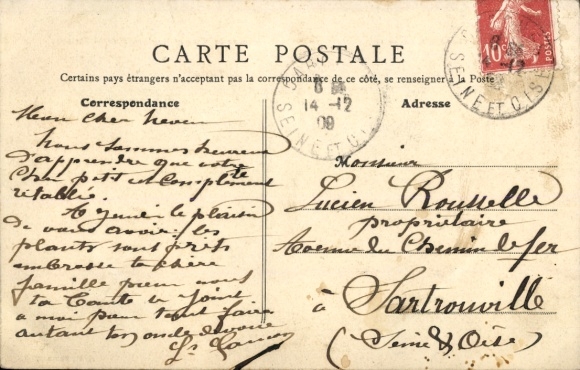 CARTE POSTALE
Certains pays étrangers n'acceptant pas la correspondance de ce côté, se renseigner à la Poste
Correspondance
Mon cher neveu
Nous sommes heureux
d'apprendre que votre
cher petit est complètement
rétablie.
A Jeudi le plaisir
de vous avoir. les
plants sont prêts
embrasse ta chère
famille pour nous
ta Tante se joint
a moi pour tout faire
autant ton oncle dévoué
Adresse
Monsieur
Lucien Rousselle
propriétaire
Avenue du Chemin de fer
à Sartrouville
(Seine & Oise)
10
POSTES
8
14 -12
09
SEINE ET OISE
SEINE ET OISE